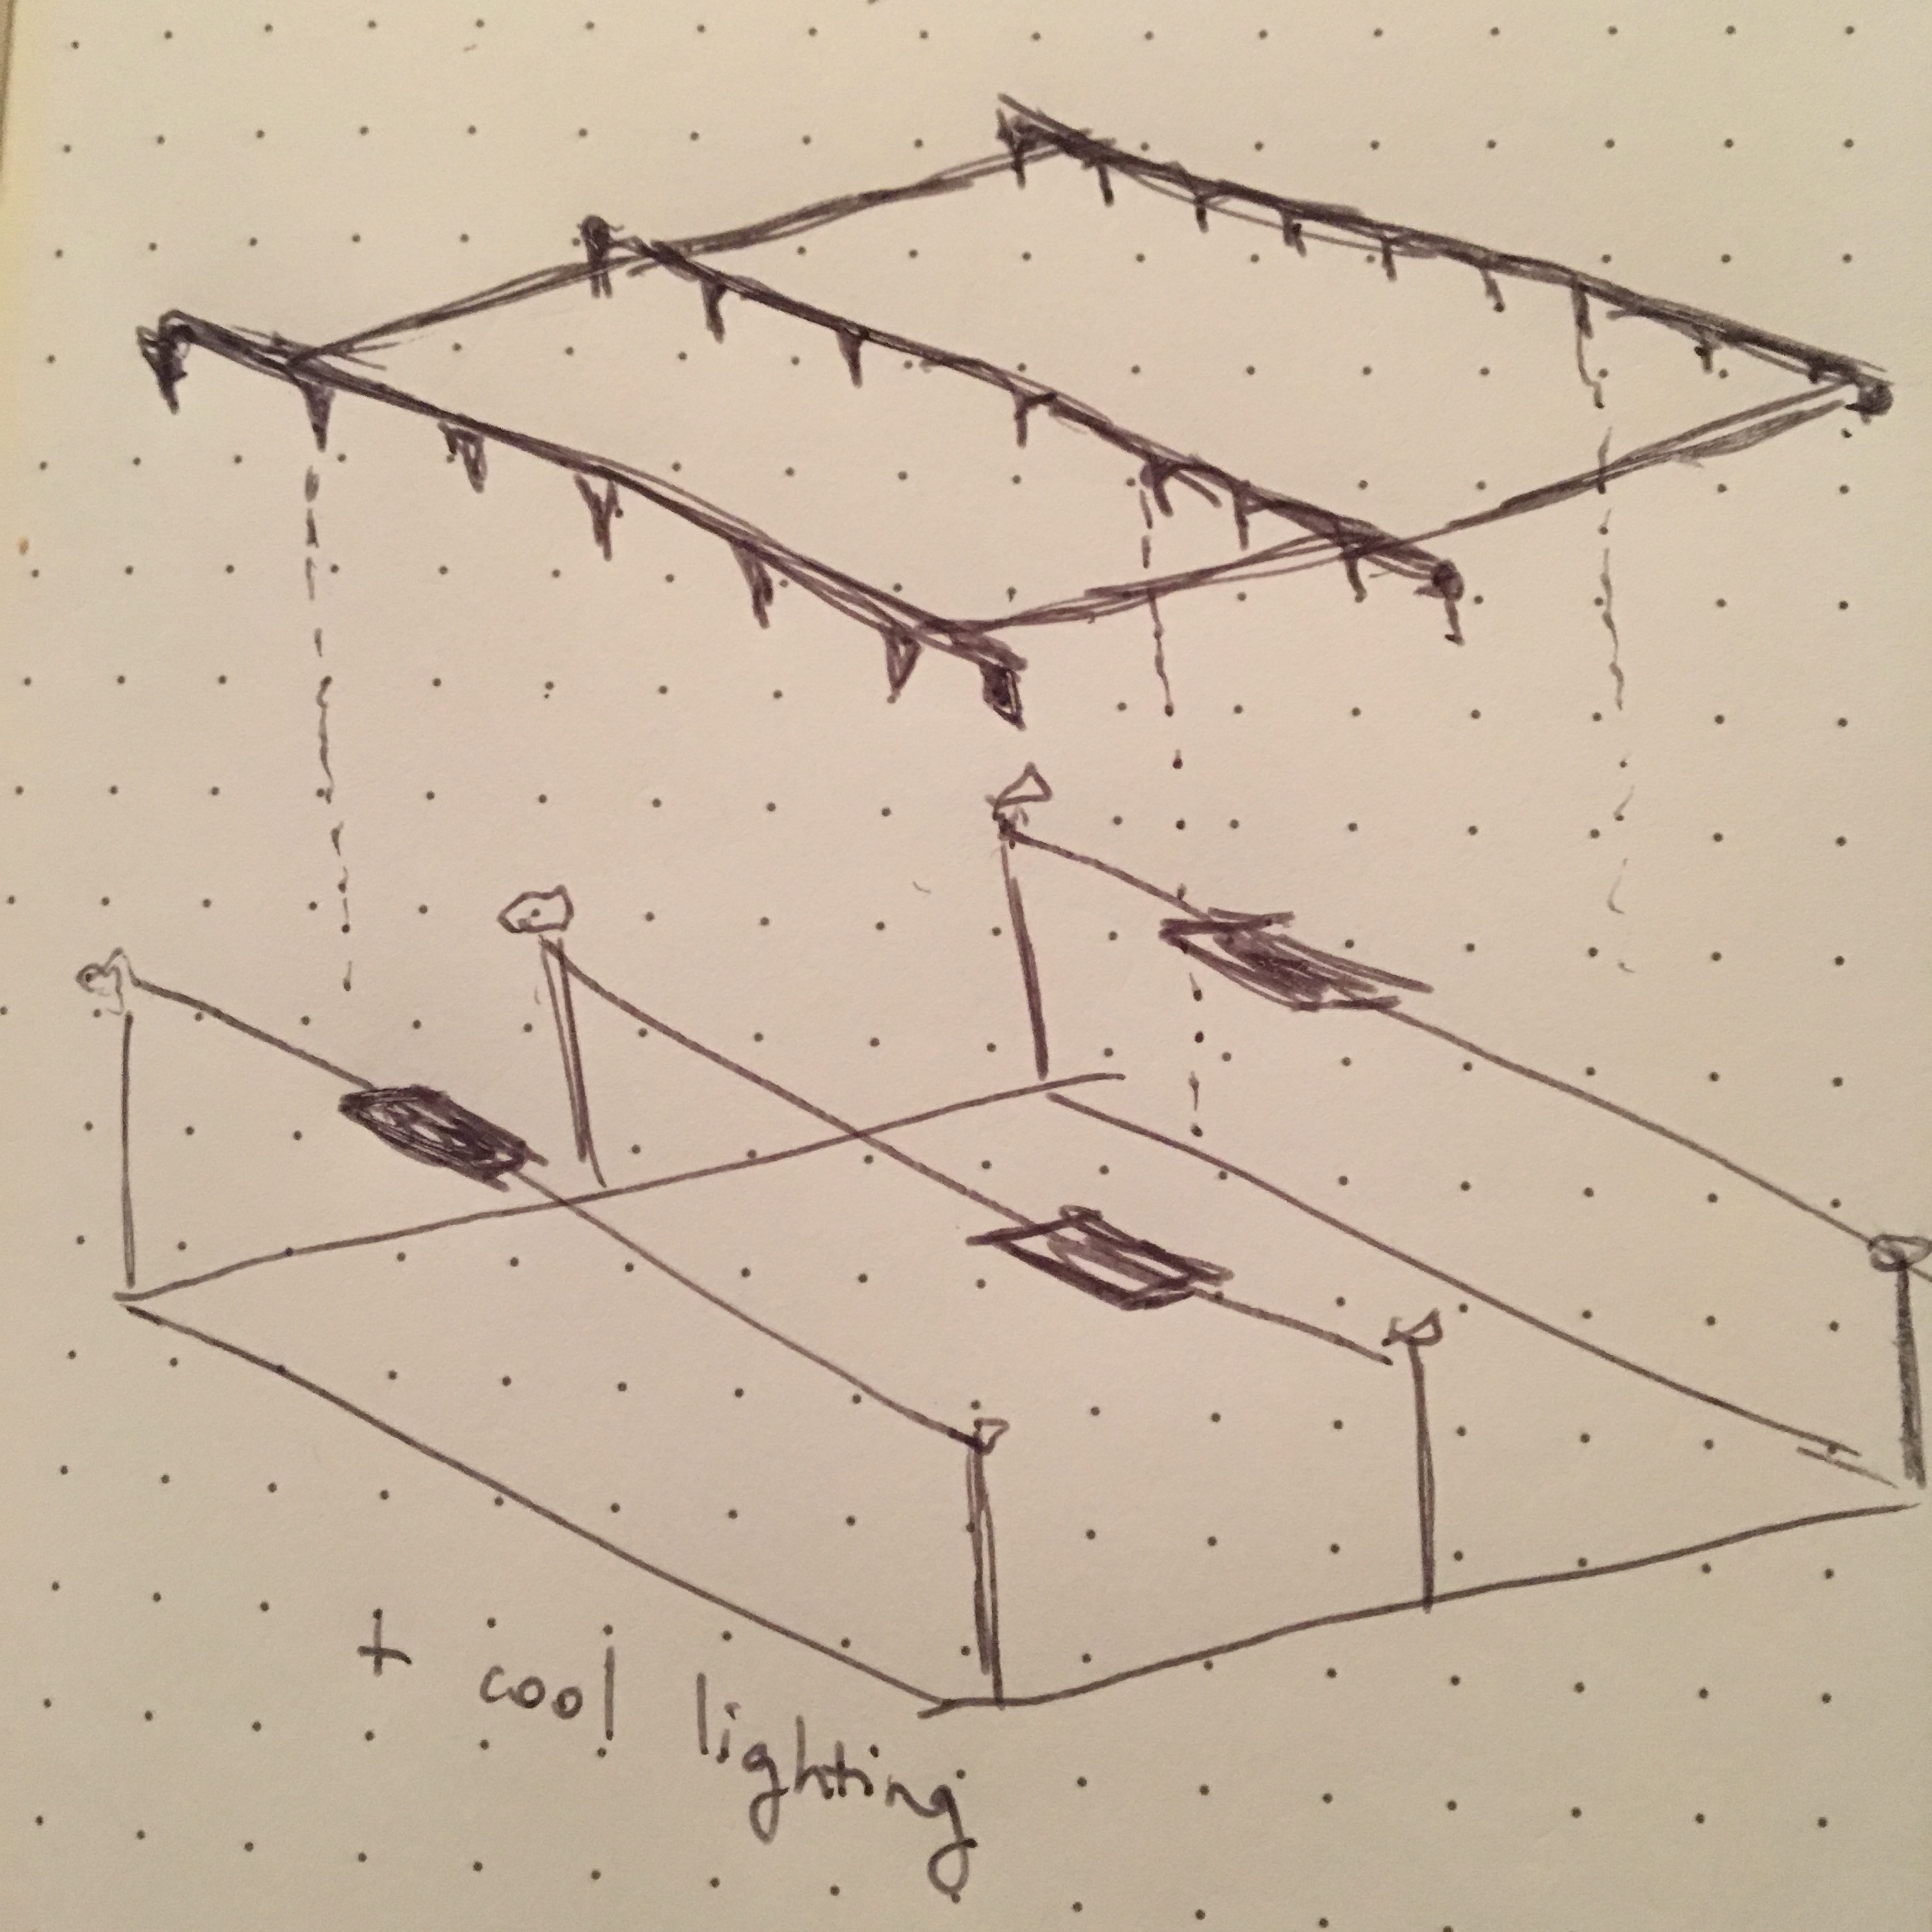 + cool lighting